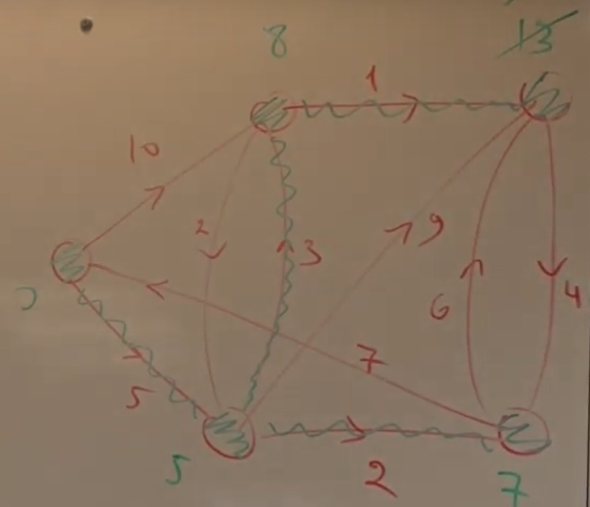 8
13
1
10
2
3
9
6
4
7
5
5
2
7